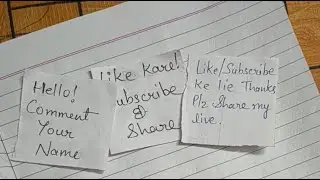 Hello!
Comment
Your
Name
Like Kare!
Subscribe
&
Share
Like/Subscribe
Ke lie Thanks
Plz Share my
live.